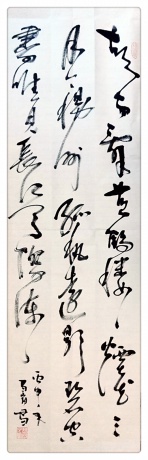 故人西辭黃鶴樓煙花三
月下揚州孤帆遠影碧空
盡唯見長江天際流
丙申